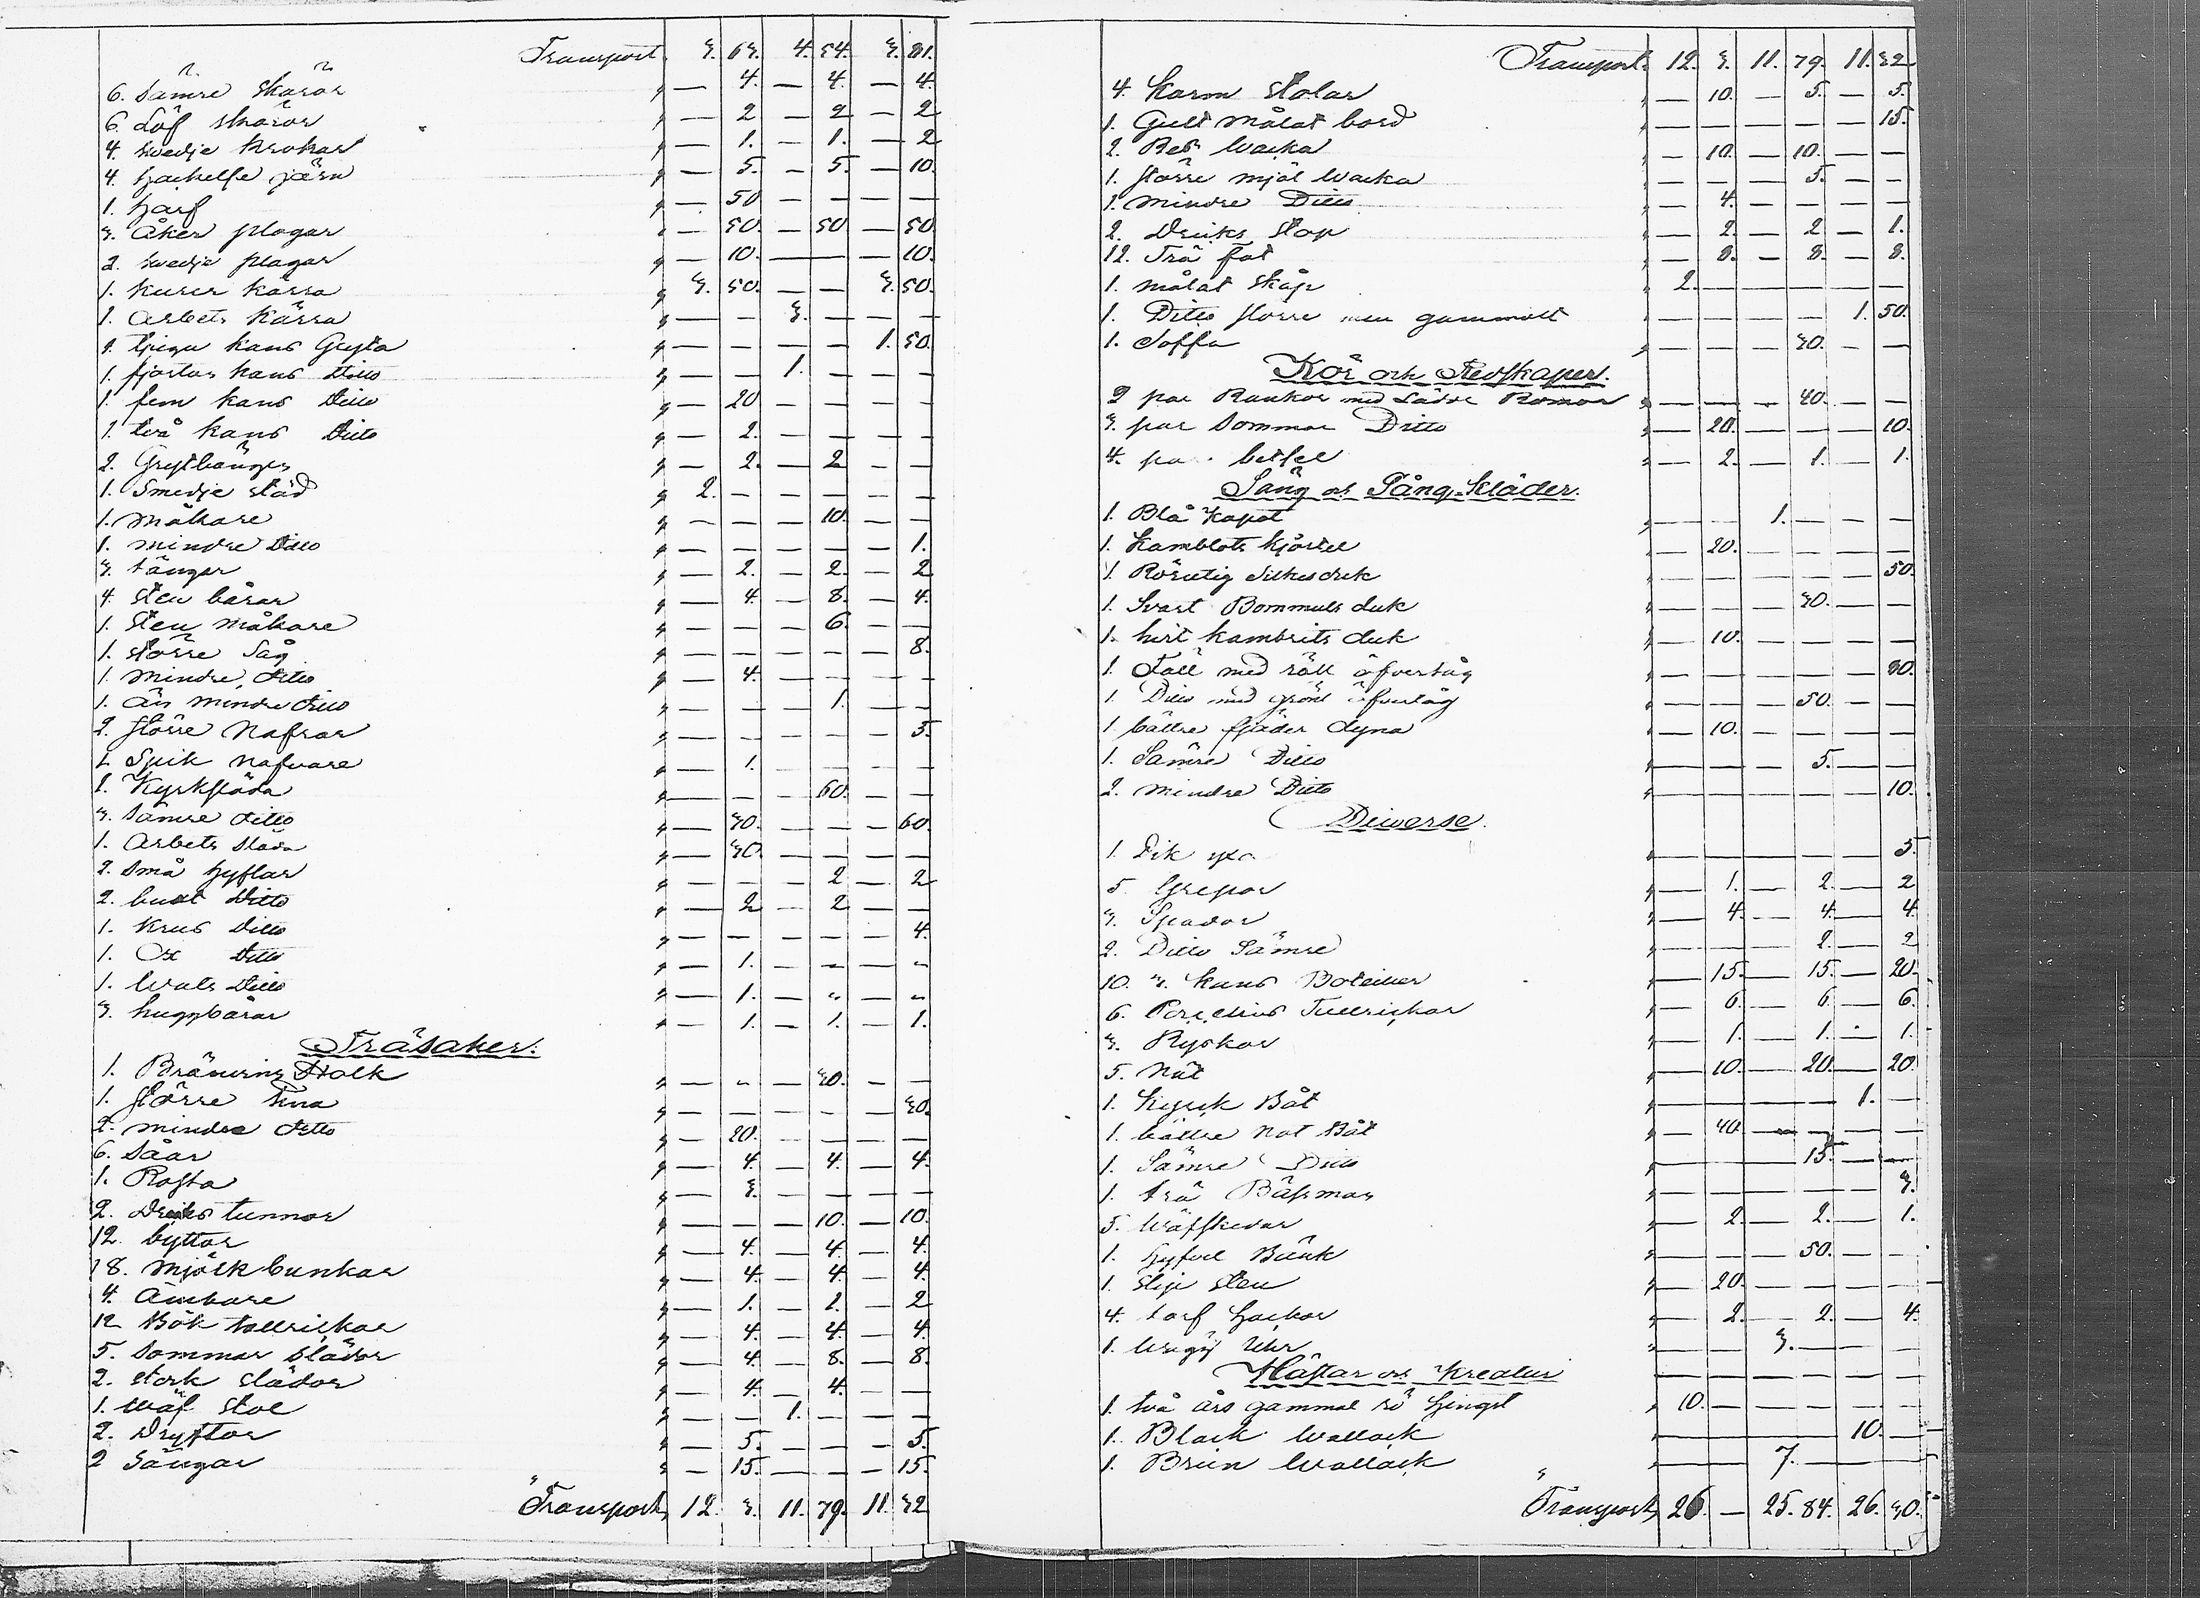 Transport. 3. 63. 4. 54. 3. 81.
6. Sämre Skäror — 4. — 4. — 4.
6. Löf skäror — 2 — 2 — 2
4. swedje krokar — 1. — 1. — 2
4. hackelse järn — 5. — 5. — 10.
1. harf — 50 — — — —
3. åker plogar — 50. — 50 — 50.
2. swedje plogar — 10. — — — 10.
1. kurer kärra 3. 50. — — 3. 50.
1. arbets kärra — — 3. — — —
1. tjugu kans Gryta — — — — 1. 50.
1. fjortan kans Ditto — — 1. — — —
1. fem kans Ditto — 20 — — — —
1. två kans Ditto — 2. — — — —
2. Grythänger — 2. — 2 — —
1. Smedje städ 2. — — — — —
1. måkare — — — 10. — —
1. mindre Ditto — — — — — 1.
3. tänger — 2. — 2. — 2
4. sten bårar — 4. — 8. — 4.
1. Sten måkare — — — 6. — —
1. större Såg — — — — — 8.
1. mindre ditto — 4. — — — —
1. än mindre ditto — — — 1. — —
2. större Nafrar — — — — — 3.
1. Spik nafvare — 1. — — — —
1. Kyrksläda — — — 60. — —
3. Sämre ditto — 30. — — — 60.
1. Arbets släda — 30. — — — —
2. små hyflar — — — 2 — 2
2. Ditto — 2 — 2 — —
1. Krus Ditto — — — — — 4.
1. Ox Ditto — 1. — — — —
1. Wals Ditto — 1. — — — —
3. huggbårar — 1. — 1. — 1.
Träsaker.
1. Brännvins Stolk — — — 30. — —
1. större Tina — — — — — 30.
2. mindre ditto — 20. — — — —
6. Såar — 4. — 4. — 4.
1. Rosta — 3. — — — —
2. Driks tunnor — — — 10. — 10.
12. byttor — 4. — 4. — 4.
18. mjölk bunkar — 4. — 4. — 4.
4. Ämbare — 1. — 2. — 2
12 Bök tallrickar — 4. — 4. — 4.
5. Sommar slädor — 4. — 8. — 8.
2. stork slädor — 4. — 4. — —
1. Wäf Stol — — 1. — — —
2. Dryftor — 5. — — — 5.
2 Sängar — 15. — — — 15.
Transport, 12. 3. 11. 79. 11. 32
Transport. 12. 3. 11. 79. 11. 32
4. Karm Stolar — 10. — 5. — 5.
1. Gult målat bord — — — — — 15.
2. Wacka — 10. — 10. — —
1. större mjöl Wacka — — — 5. — —
1. mindre Ditto — 4. — — — —
2. Driks Stop — 2. — 2 — 1.
12. Trä fat — 8. — 8. — 8.
1. målat Skåp 2. — — — — —
1. Ditto större men gammalt — — — — 1. 50.
1. Soffa — — — 30. — —
Kör och Redskaper.
2 par Rankor med Läder Remar — — — 40. — —
3. par Sommar Ditto — 20. — — — 10.
4. par betsel — 2. — 1. — 1.
Säng o. Gång-kläder.
1. Blå kapot — — 1. — — —
1. Kamblots kjortel — 20. — — — —
1. Rörutig Silkesduk — — — — — 50.
1. Svart Bommuls duk — — — 30. — —
1. hvit kambrits duk — 10. — — — —
1. Fäll med rött öfvertåg — — — — — 80.
1. Ditto med grönt öfvertåg — — — 50. — —
1. bättre fjäder dyna — 10. — — — —
1. Sämre Ditto — — — 5. — —
2. mindre Ditto — — — — — 10.
Diverse.
1. Dik yxa — — — — — 5.
5. Grepor — 1. — 2. — 2
3. Spador — 4. — 4. — 4.
2. Ditto Sämre — — — 2. — 2
10. 3. kans Boteiller — 15. — 15. — 20.
6. Tallrickar — 6. — 6. — 6.
3. Ryskor — 1. — 1. — 1.
5. Nät — 10. — 20. — 20.
1. Kyrck Båt — — — — 1. —
1. bättre Not Båt — 40. — — — —
1. Sämre Ditto — — — 15. — —
1. trä Bäfsman — — — — — 3.
5. Wäfskedar — 2. — 2. — 1.
1. hyfvel Bänk — — — 50. — —
1. Slip sten — 20. — — — —
4. torf hackor — 2. — 2. — 4.
1. Wägg Uhr — — 3. — — —
Hästar o. Kreatur
1. två års gammal hingst 10. — — — — —
1. Black Wallack — — — — 10. —
1. Brun Wallack — — 7. — — —
Transport, 26. — 25. 84. 26. 30.